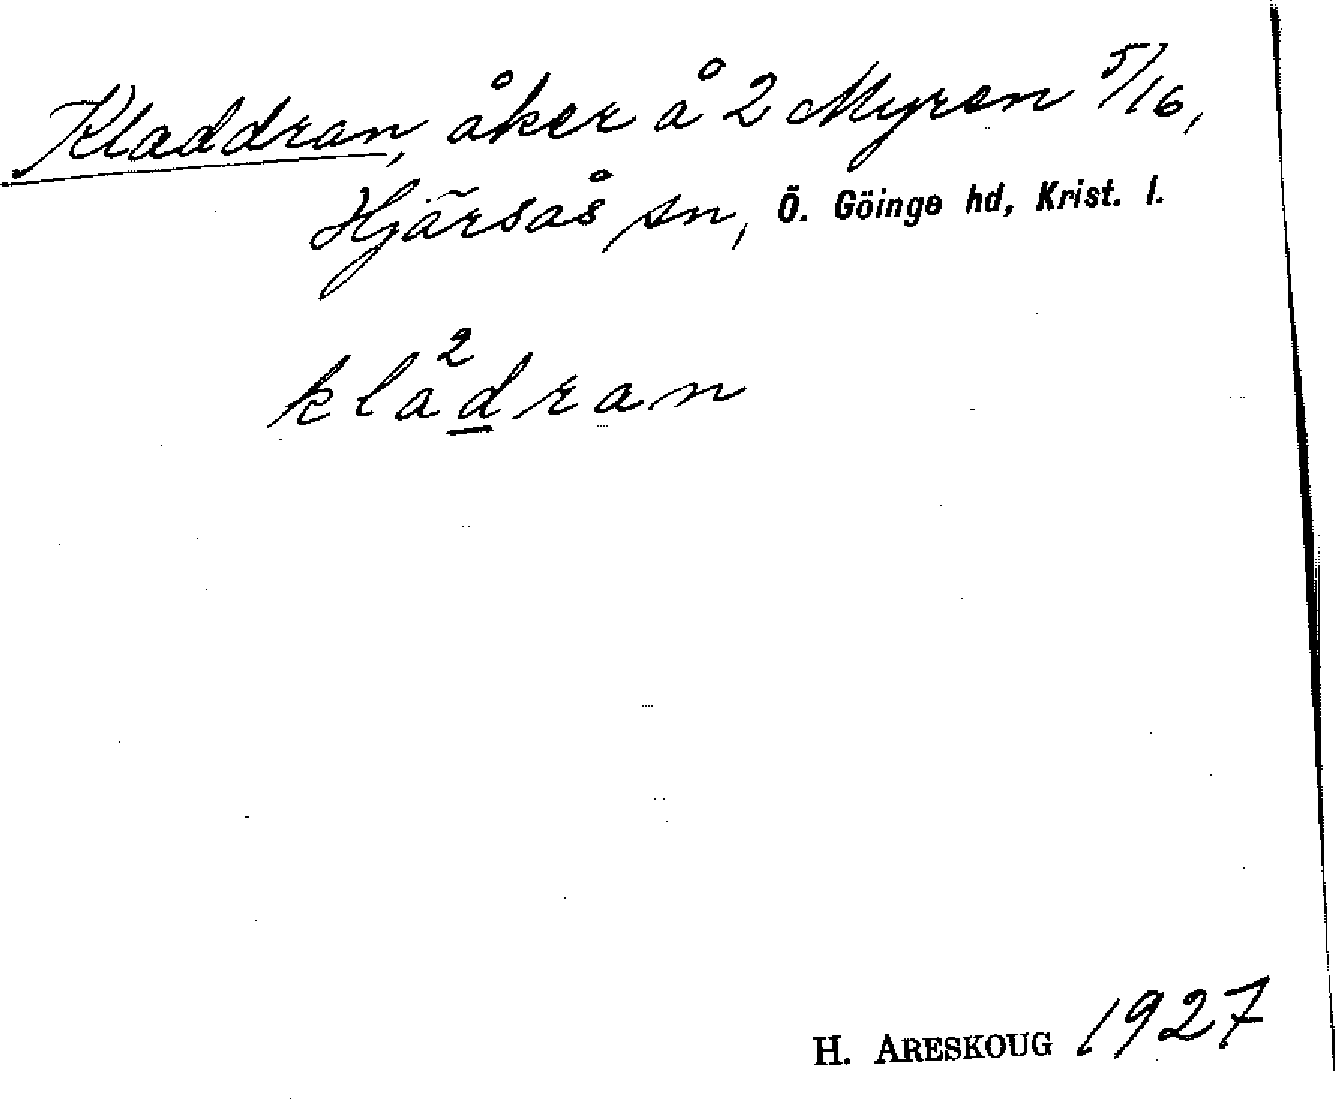 Kladdran, åker å 2 Myren 5/16,
Hjärsås sn, Ö. Göinge hd, Krist. l.
kla²dran
H. ARESKOUG 1927